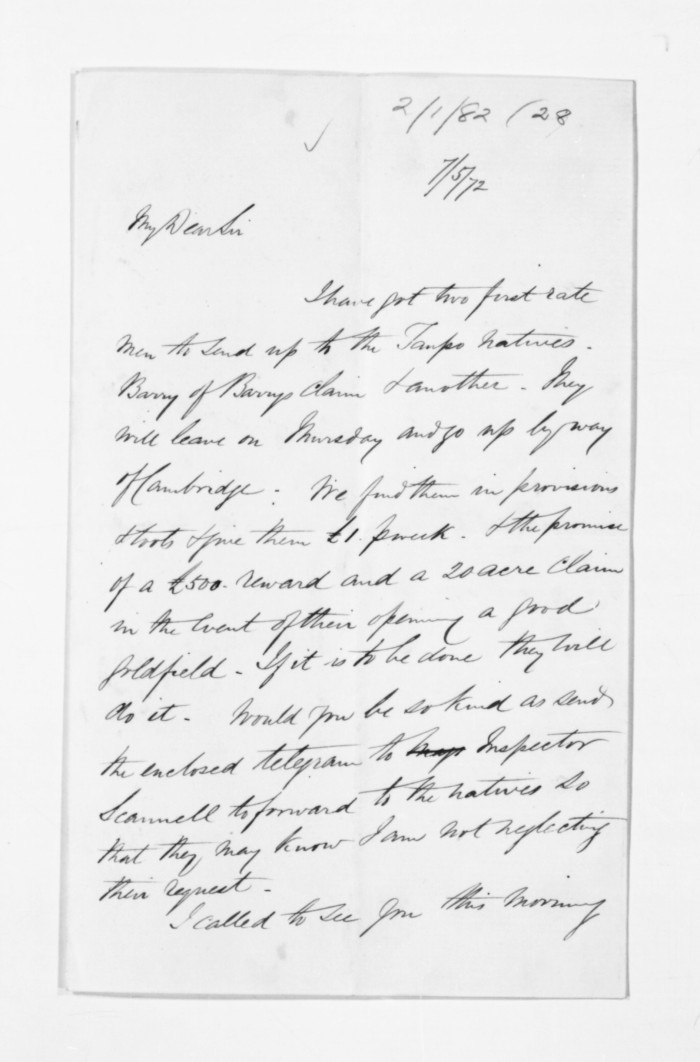 2/1/82 (28
7/5/72
My Dear Sir
I have got two first rate
men to send up to the Taupo natives.
Barry of Barrys Claim & another - They
will leave on Thursday and go up by way
of Cambridge. We find them in provisions
& tools & give them £1. p week. & the promise
of a £500. reward and a 20 acre Claim
in the event of their opening a good
goldfield - If it is to be done they will
do it - Would you be so kind as send
the enclosed telegram to Inspector
Scannell to forward to the natives so
that they may know I am not neglecting
their request -
I called to see you this morning